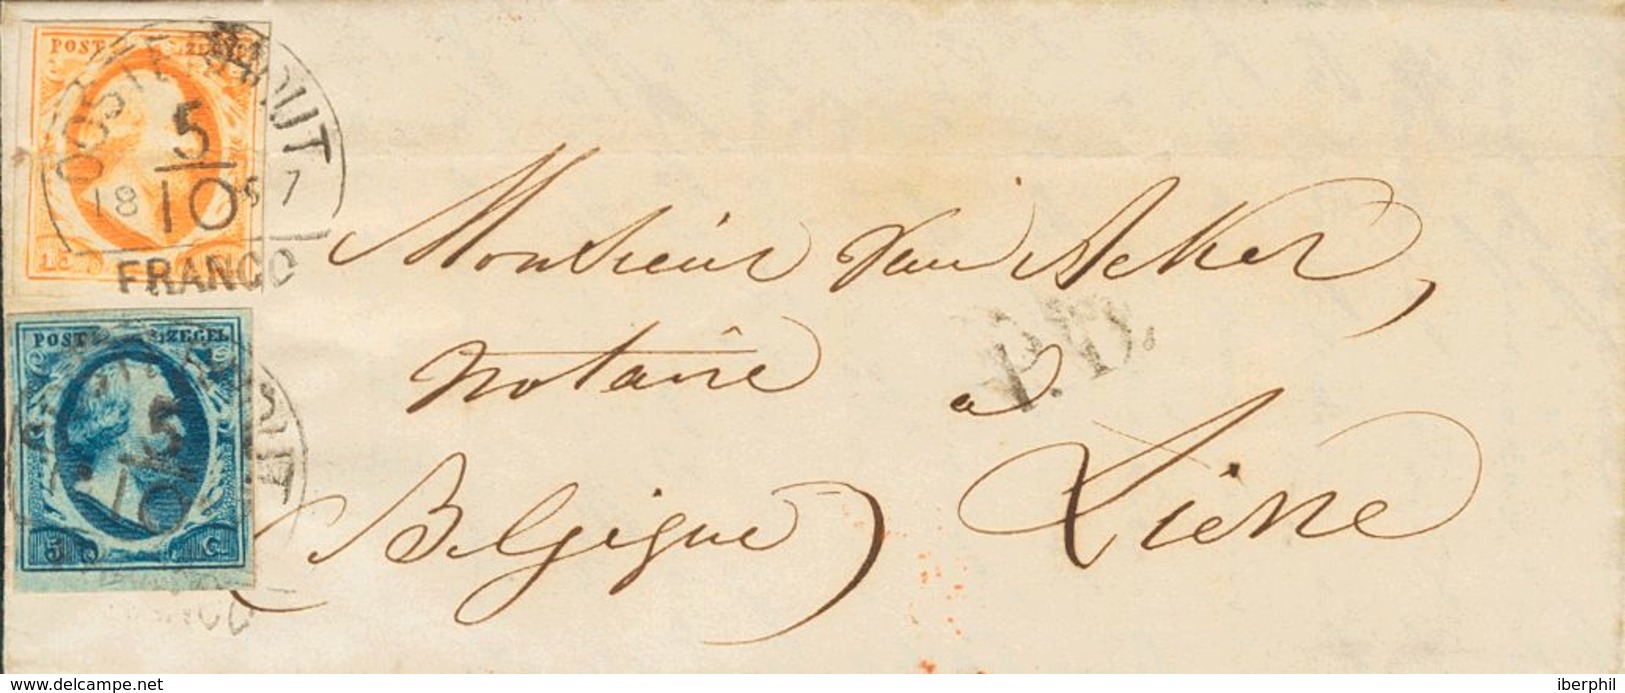 POST ZEGEL
OOSTERHOUT
5
18 10 57
FRANCO
POST ZEGEL
5
10
5 C.
FRANCO
Monsieur Van Acker,
notaire
P.D.
à Lierre
(Belgique)
delcampe.net
iberphil